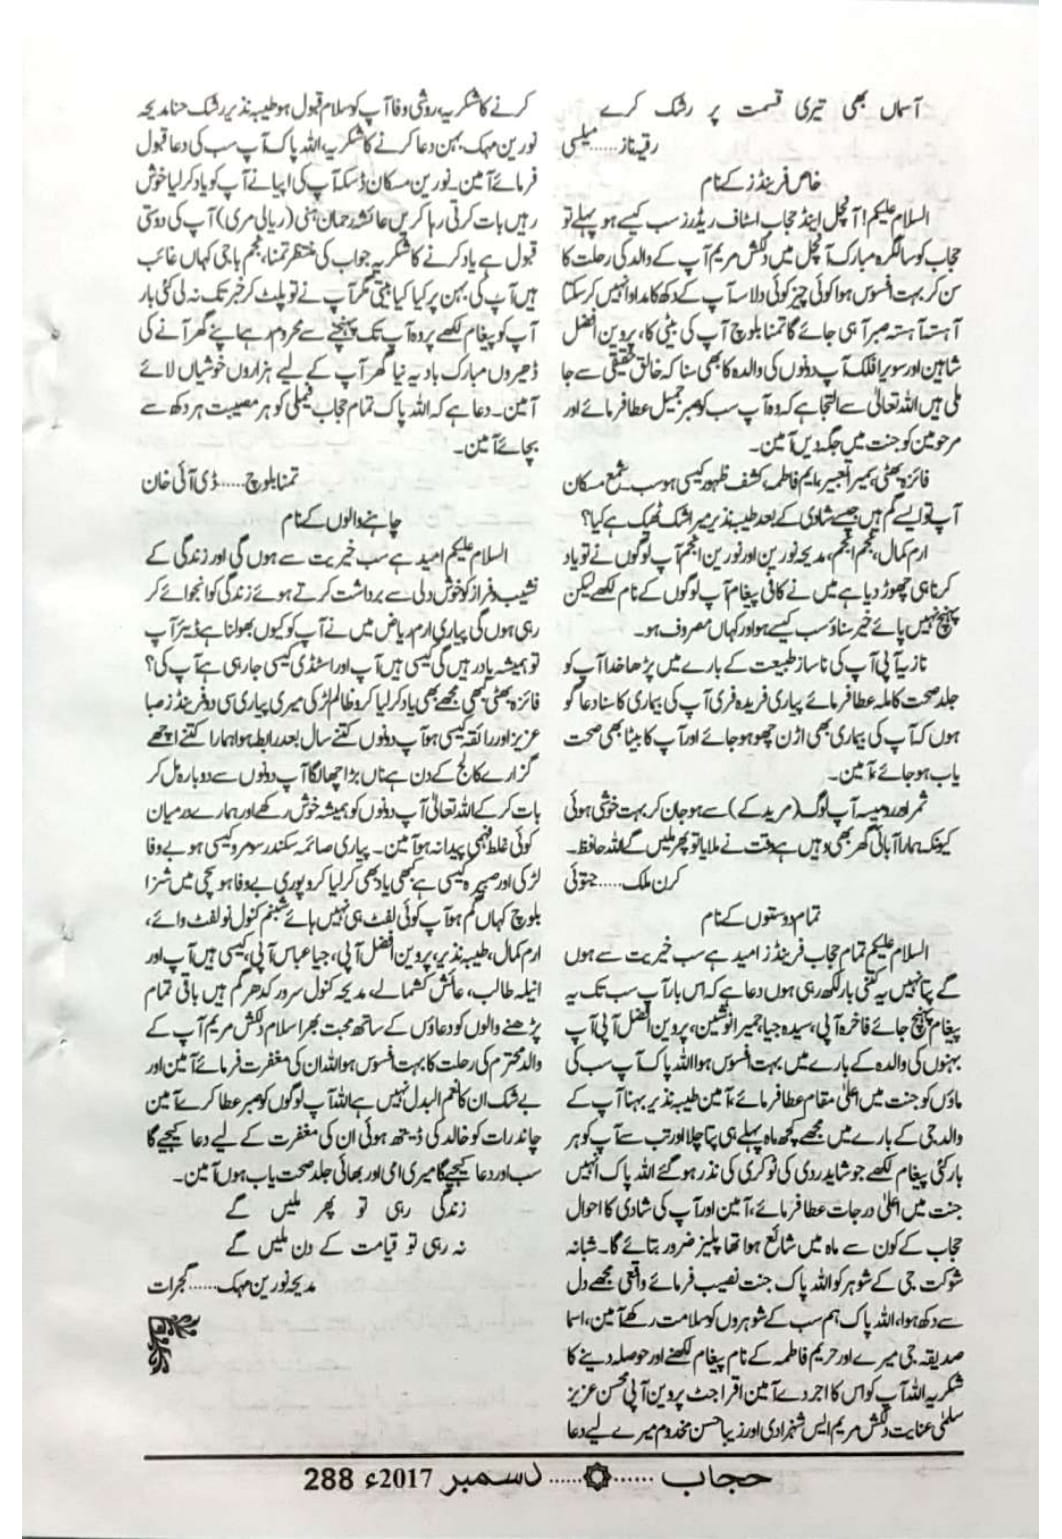 آسماں بھی تیری قسمت پر رشک کرے
رقیہ ناز......میلسی
خاص فرینڈز کے نام
السلام علیکم! آنچل اینڈ حجاب اسٹاف ریڈرز سب کیسے ہو پہلے تو
حجاب کو سالگرہ مبارک آنچل میں دلکش مریم آپ کے والد کی رحلت کا
سن کر بہت افسوس ہوا کوئی چیز کوئی دلاسہ آپ کے دکھ کا مداوا نہیں کرسکتا
آہستہ آہستہ صبر آ ہی جائے گا تمنا بلوچ آپ کی بیٹی کا، پروین افضل
شاہین اور سویرا فلک آپ دونوں کی والدہ کا بھی سنا کہ خالق حقیقی سے جا
ملی ہیں اللہ تعالیٰ سے التجا ہے کہ وہ آپ سب کو صبر جمیل عطا فرمائے اور
مرحومین کو جنت میں جگہ دیں آمین۔
فائزہ بھٹی، سمیرا تعبیر، ایم فاطمہ، کشف ظہور کیسی ہو سب۔ شمع مسکان
آپ تو ایسے گم ہیں جیسے شادی کے بعد طیبہ نذیر میرا شک ٹھیک ہے کیا؟
ارم کمال، نجم انجم، مدیحہ نورین اور نورین انجم آپ لوگوں نے تو یاد
کرنا ہی چھوڑ دیا ہے میں نے کافی پیغام آپ لوگوں کے نام لکھے لیکن
پہنچ نہیں پائے خیر سناؤ سب کیسے ہو اور کہاں مصروف ہو۔
نازیہ آپی آپ کی ناساز طبیعت کے بارے میں پڑھا خدا آپ کو
جلد صحت کاملہ عطا فرمائے پیاری فریدہ فری آپ کی بیماری کا سنا دعا گو
ہوں کہ آپ کی بیماری بھی اڑن چھو ہو جائے اور آپ کا بیٹا بھی صحت
یاب ہو جائے، آمین۔
ثمر اور رومیسہ آپ لوگ (مریدکے) سے ہو جان کر بہت خوشی ہوئی
کیونکہ ہمارا آبائی گھر بھی وہیں ہے وقت نے ملایا تو پھر ملیں گے اللہ حافظ۔
کرن ملک......جتوئی
تمام دوستوں کے نام
السلام علیکم تمام حجاب فرینڈز امید ہے سب خیریت سے ہوں
گے پتا نہیں یہ کتنی بار لکھ رہی ہوں دعا ہے کہ اس بار آپ سب تک یہ
پیغام پہنچ جائے فاخرہ آپی، سیدہ جیا، حمیرا نوشین، پروین افضل آپی آپ
بہنوں کی والدہ کے بارے میں بہت افسوس ہوا اللہ پاک آپ سب کی
ماؤں کو جنت میں اعلیٰ مقام عطا فرمائے، آمین طیبہ نذیر بہنا آپ کے
والد جی کے بارے میں مجھے کچھ ماہ پہلے ہی پتا چلا اور تب سے آپ کو ہر
بار کئی پیغام لکھے جو شاید ردی کی ٹوکری کی نذر ہو گئے اللہ پاک انہیں
جنت میں اعلیٰ درجات عطا فرمائے، آمین اور آپ کی شادی کا احوال
حجاب کے کون سے ماہ میں شائع ہوا تھا پلیز ضرور بتائے گا۔ شبانہ
شوکت جی کے شوہر کو اللہ پاک جنت نصیب فرمائے واقعی مجھے دل
سے دکھ ہوا، اللہ پاک ہم سب کے شوہروں کو سلامت رکھے آمین، اسما
صدیقہ جی میرے اور حریم فاطمہ کے نام پیغام لکھنے اور حوصلہ دینے کا
شکریہ اللہ آپ کو اس کا اجر دے آمین اقرا جٹ پروین آپی محسن عزیز
سلمیٰ عنایت دلکش مریم ایس شہزادی اور زیبا حسن مخدوم میرے لیے دعا
کرنے کا شکریہ، روشی وفا آپ کو سلام قبول ہو طیبہ نذیر رشک حنا مدیحہ
نورین مہک بہن دعا کرنے کا شکریہ، اللہ پاک آپ سب کی دعا قبول
فرمائے آمین۔ نورین مسکان ڈسکہ آپ کی اپیا نے آپ کو یاد کرلیا خوش
رہیں بات کرتی رہا کریں عائشہ رحمان ہنی (ریالی مری) آپ کی دوستی
قبول ہے یاد کرنے کا شکریہ جواب کی منتظر تمنا، نجم باجی کہاں غائب
ہیں آپ کی بہن پر کیا کیا بیتی مگر آپ نے تو پلٹ کر خبر تک نہ لی کئی بار
آپ کو پیغام لکھے پر وہ آپ تک پہنچنے سے محروم رہے اپنے گھر آنے کی
ڈھیروں مبارک باد یہ نیا گھر آپ کے لیے ہزاروں خوشیاں لائے
آمین۔ دعا ہے کہ اللہ پاک تمام حجاب فیملی کو ہر مصیبت ہر دکھ سے
بچائے آمین۔
تمنا بلوچ......ڈی آئی خان
چاہنے والوں کے نام
السلام علیکم امید ہے سب خیریت سے ہوں گی اور زندگی کے
نشیب و فراز کو خوش دلی سے برداشت کرتے ہوئے زندگی کو انجوائے کر
رہی ہوں گی پیاری ارم ریاض میں نے آپ کو کیوں بھولنا ہے ڈئیر آپ
تو ہمیشہ یاد رہیں گی کیسی ہیں آپ اور اسٹڈی کیسی جا رہی ہے آپ کی؟
فائزہ بھٹی کبھی مجھے بھی یاد کر لیا کرو ظالم لڑکی میری پیاری سی دو فرینڈز صبا
عزیز اور رائقہ کیسی ہو آپ دونوں کتنے سال بعد رابطہ ہوا ہمارا کتنے اچھے
گزارے کالج کے دن ہے ناں بڑا اچھا لگا آپ دونوں سے دوبارہ مل کر
بات کر کے اللہ تعالیٰ آپ دونوں کو ہمیشہ خوش رکھے اور ہمارے درمیان
کوئی غلط فہمی پیدا نہ ہو آمین۔ پیاری صائمہ سکندر سومرو کیسی ہو بے وفا
لڑکی اور صبیرہ کیسی ہے کبھی یاد بھی کر لیا کرو پوری بے وفا ہو سچی میں شزا
بلوچ کہاں گم ہو آپ کوئی لفٹ ہی نہیں ہائے شبنم کنول نو لفٹ وائے،
ارم کمال، طیبہ نذیر، پروین افضل آپی، جیا عباس آپی، کیسی ہیں آپ اور
انیلہ طالب، عائش کشمالے، مدیحہ کنول سرور کدھر گم ہیں باقی تمام
پڑھنے والوں کو دعاؤں کے ساتھ محبت بھرا سلام دلکش مریم آپ کے
والد محترم کی رحلت کا بہت افسوس ہوا اللہ ان کی مغفرت فرمائے آمین اور
بے شک ان کا نعم البدل نہیں ہے اللہ آپ لوگوں کو صبر عطا کرے آمین
چاند رات کو خالد کی ڈیتھ ہوئی ان کی مغفرت کے لیے دعا کیجیے گا
سب اور دعا کیجیے گا میری امی اور بھائی جلد صحت یاب ہوں آمین۔
زندگی رہی تو پھر ملیں گے
نہ رہی تو قیامت کے دن ملیں گے
مدیحہ نورین مہک......گجرات
حجاب ...... دسمبر 2017ء 288